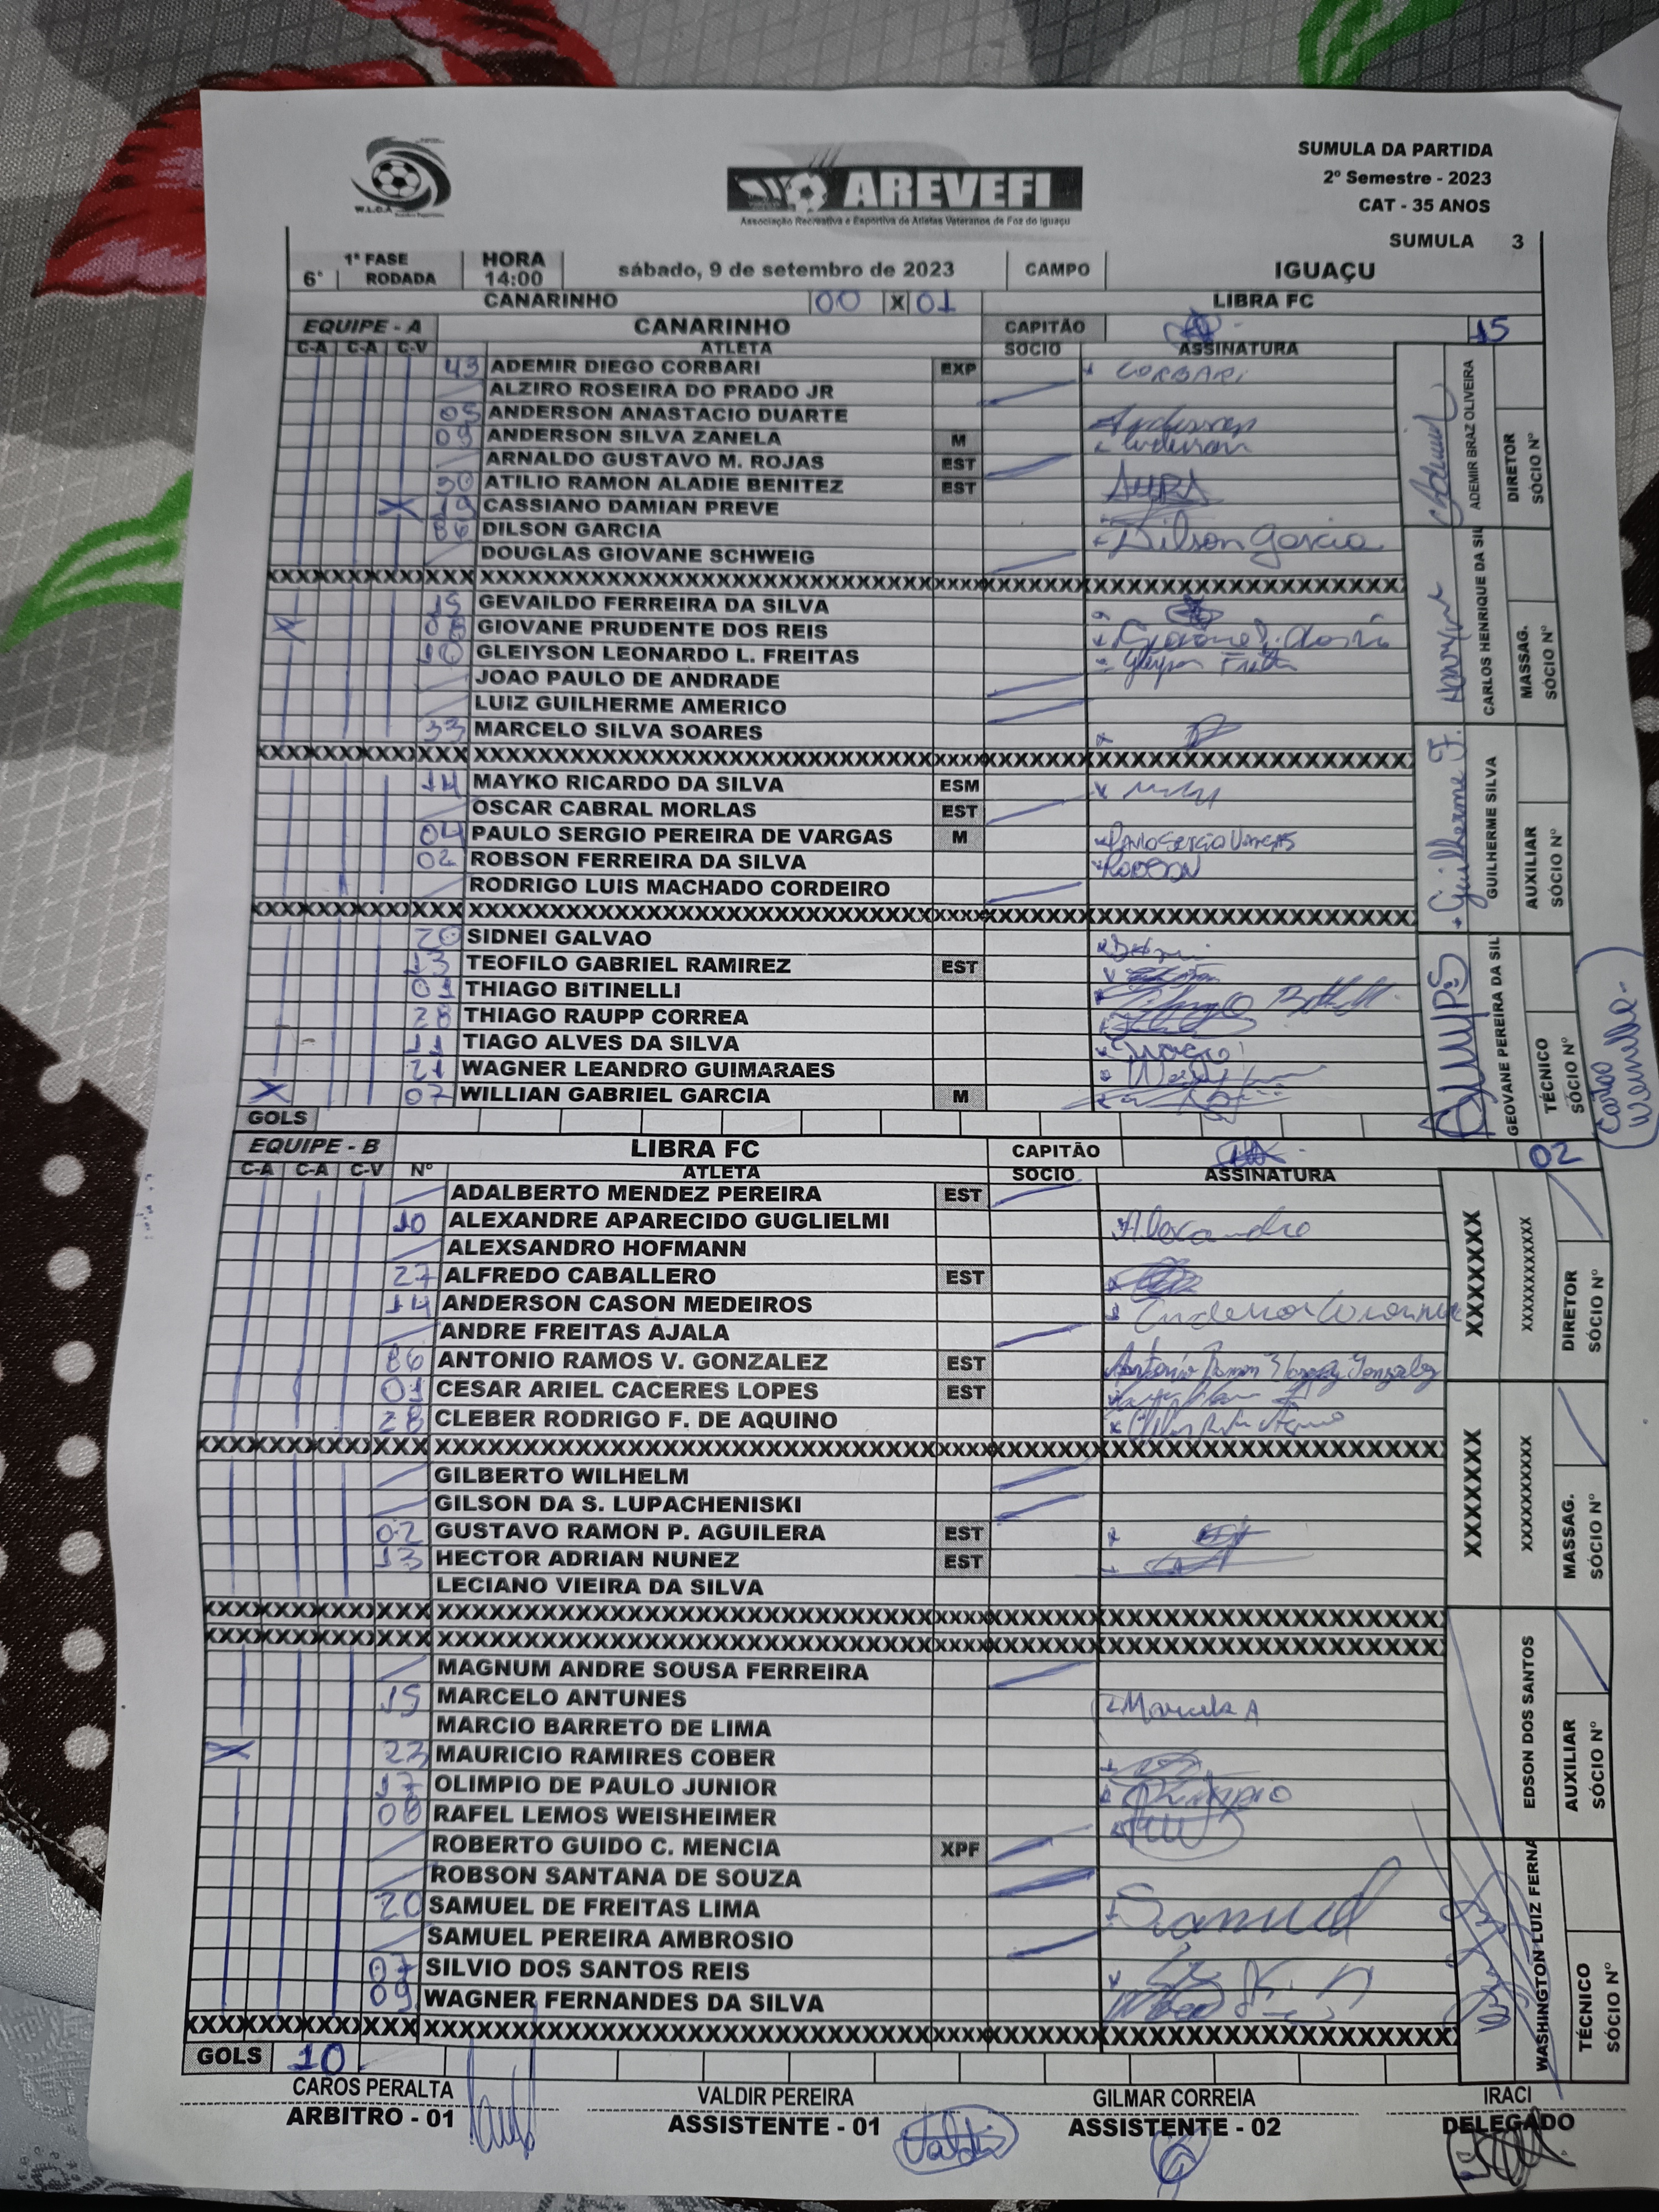 SUMULA DA PARTIDA
2º Semestre - 2023
CAT - 35 ANOS
W.L.O.A
AREVEFI
Associação Recreativa e Esportiva de Atletas Veteranos de Foz do Iguaçu
SUMULA 3
1ª FASE HORA
6ª RODADA 14:00 sábado, 9 de setembro de 2023 CAMPO IGUAÇU
CANARINHO 00 X 01 LIBRA FC
EQUIPE - A CANARINHO CAPITÃO 15
C-A C-A C-V ATLETA SOCIO ASSINATURA
43 ADEMIR DIEGO CORBARI EXP CORBARI
ALZIRO ROSEIRA DO PRADO JR
05 ANDERSON ANASTACIO DUARTE Anderson
09 ANDERSON SILVA ZANELA M Anderson
ARNALDO GUSTAVO M. ROJAS EST
30 ATILIO RAMON ALADIE BENITEZ EST
X 19 CASSIANO DAMIAN PREVE
86 DILSON GARCIA Dilson Garcia
DOUGLAS GIOVANE SCHWEIG
XXXXXXXXXXXXXXXXXXXXXXXXXXXXXXXXXXXXXXXX
15 GEVAILDO FERREIRA DA SILVA
X 08 GIOVANE PRUDENTE DOS REIS
10 GLEIYSON LEONARDO L. FREITAS
JOAO PAULO DE ANDRADE
LUIZ GUILHERME AMERICO
33 MARCELO SILVA SOARES
XXXXXXXXXXXXXXXXXXXXXXXXXXXXXXXXXXXXXXXX
14 MAYKO RICARDO DA SILVA ESM
OSCAR CABRAL MORLAS EST
04 PAULO SERGIO PEREIRA DE VARGAS M Paulo Sergio Vargas
02 ROBSON FERREIRA DA SILVA ROBSON
RODRIGO LUIS MACHADO CORDEIRO
XXXXXXXXXXXXXXXXXXXXXXXXXXXXXXXXXXXXXXXX
20 SIDNEI GALVAO
13 TEOFILO GABRIEL RAMIREZ EST
01 THIAGO BITINELLI
28 THIAGO RAUPP CORREA
11 TIAGO ALVES DA SILVA
21 WAGNER LEANDRO GUIMARAES
X 07 WILLIAN GABRIEL GARCIA M
GOLS
Ademir
ADEMIR BRAZ OLIVEIRA
DIRETOR
SÓCIO Nº
CARLOS HENRIQUE DA SIL
MASSAG.
SÓCIO Nº
Guilherme F.
GUILHERME SILVA
AUXILIAR
SÓCIO Nº
GEOVANE PEREIRA DA SIL
TÉCNICO
SÓCIO Nº
Cartão
Vermelho
EQUIPE - B LIBRA FC CAPITÃO 02
C-A C-A C-V Nº ATLETA SOCIO ASSINATURA
ADALBERTO MENDEZ PEREIRA EST
10 ALEXANDRE APARECIDO GUGLIELMI Alexandre
ALEXSANDRO HOFMANN
27 ALFREDO CABALLERO EST
14 ANDERSON CASON MEDEIROS
ANDRE FREITAS AJALA
86 ANTONIO RAMOS V. GONZALEZ EST
01 CESAR ARIEL CACERES LOPES EST
28 CLEBER RODRIGO F. DE AQUINO
XXXXXXXXXXXXXXXXXXXXXXXXXXXXXXXXXXXXXXXX
GILBERTO WILHELM
GILSON DA S. LUPACHENISKI
02 GUSTAVO RAMON P. AGUILERA EST
13 HECTOR ADRIAN NUNEZ EST
LECIANO VIEIRA DA SILVA
XXXXXXXXXXXXXXXXXXXXXXXXXXXXXXXXXXXXXXXX
XXXXXXXXXXXXXXXXXXXXXXXXXXXXXXXXXXXXXXXX
MAGNUM ANDRE SOUSA FERREIRA
15 MARCELO ANTUNES Marcelo A
MARCIO BARRETO DE LIMA
X 23 MAURICIO RAMIRES COBER
17 OLIMPIO DE PAULO JUNIOR Olimpio
08 RAFEL LEMOS WEISHEIMER
ROBERTO GUIDO C. MENCIA XPF
ROBSON SANTANA DE SOUZA
20 SAMUEL DE FREITAS LIMA Samuel
SAMUEL PEREIRA AMBROSIO
07 SILVIO DOS SANTOS REIS
09 WAGNER FERNANDES DA SILVA
XXXXXXXXXXXXXXXXXXXXXXXXXXXXXXXXXXXXXXXX
GOLS 10
XXXXXXXX
XXXXXXXXXX
DIRETOR
SÓCIO Nº
XXXXXXXX
XXXXXXXXXX
MASSAG.
SÓCIO Nº
EDSON DOS SANTOS
AUXILIAR
SÓCIO Nº
WASHINGTON LUIZ FERNA
TÉCNICO
SÓCIO Nº
CAROS PERALTA VALDIR PEREIRA GILMAR CORREIA IRACI
ARBITRO - 01 ASSISTENTE - 01 ASSISTENTE - 02 DELEGADO
Valdir